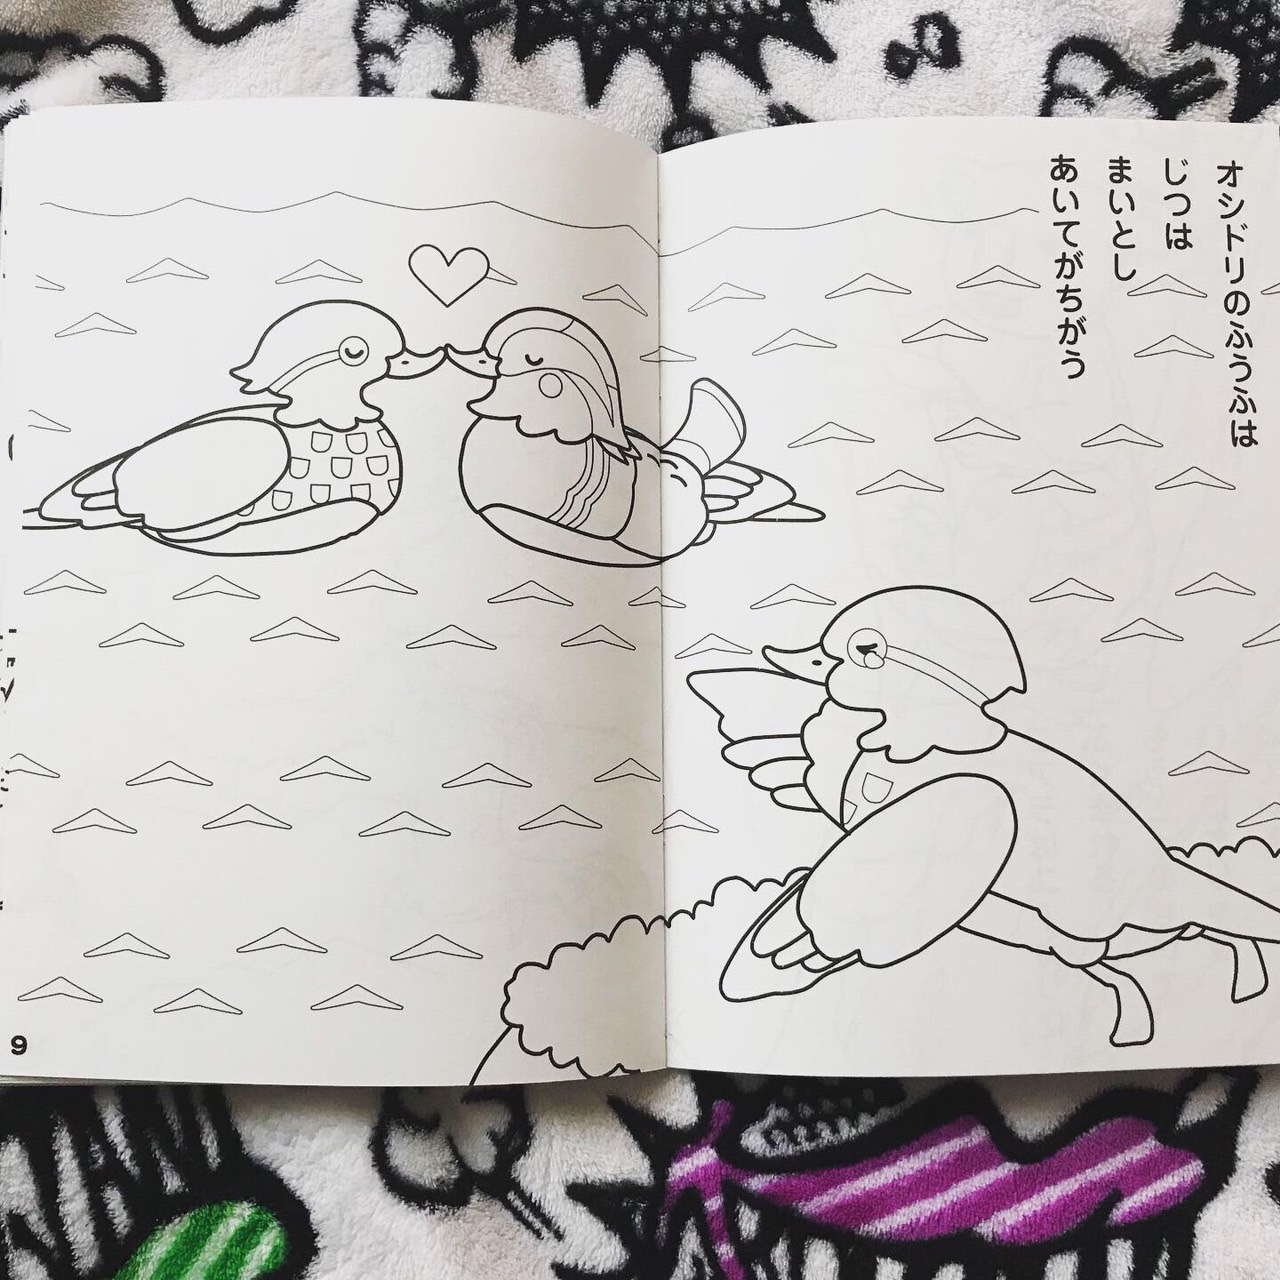 オシドリのふうふは
じつは
まいとし
あいてがちがう
9